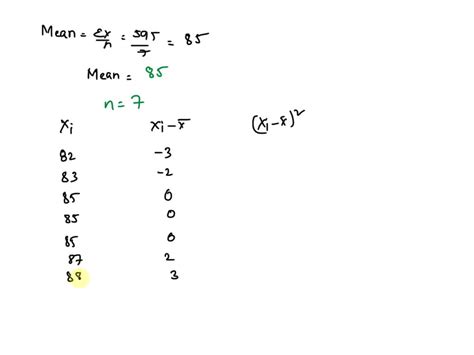 Mean = Σx/n = 595/7 = 85
Mean = 85
n = 7
xᵢ xᵢ-x̄ (xᵢ-x̄)²
82 -3
83 -2
85 0
85 0
85 0
87 2
88 3